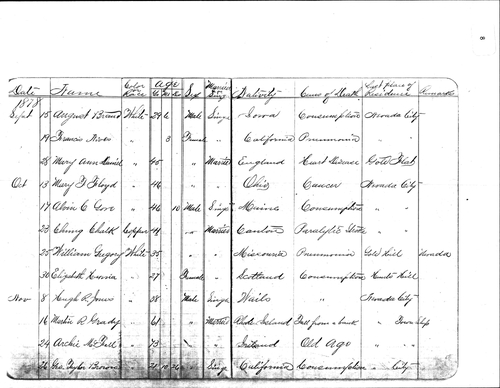 8
Date Name Color Race Age Sex Married Sing. Nativity Cause of Death Last place of Residence Remarks
1878
Sept 15 August White 29 6 Male Single Iowa Consumption Nevada City
19 Francis " 3 Female California Pneumonia " "
28 Mary Ann " 45 " Married England Heart Disease Gold Flat
Oct 13 Mary Floyd " 46 " " Ohio Cancer Nevada City
17 Alvin C Gove " 46 10 Male Single Maine Consumption " "
23 Chung Chalk Copper 41 " Married Canton Paralytic " "
25 William Gregory White 35 " Missouri Pneumonia Gold Hill Nevada
30 Elizabeth " 27 Female " Scotland Consumption Hill
Nov 8 Hugh R Jones " 38 Male Single Wails " Nevada City
16 Martin R Grady " 61 " Married Rhode Island Fall from a bank " Town Ship
24 Archie " 73 " Ireland Old Age " "
26 Geo Taylor " 21 10 26 " Sing California Consumption " City